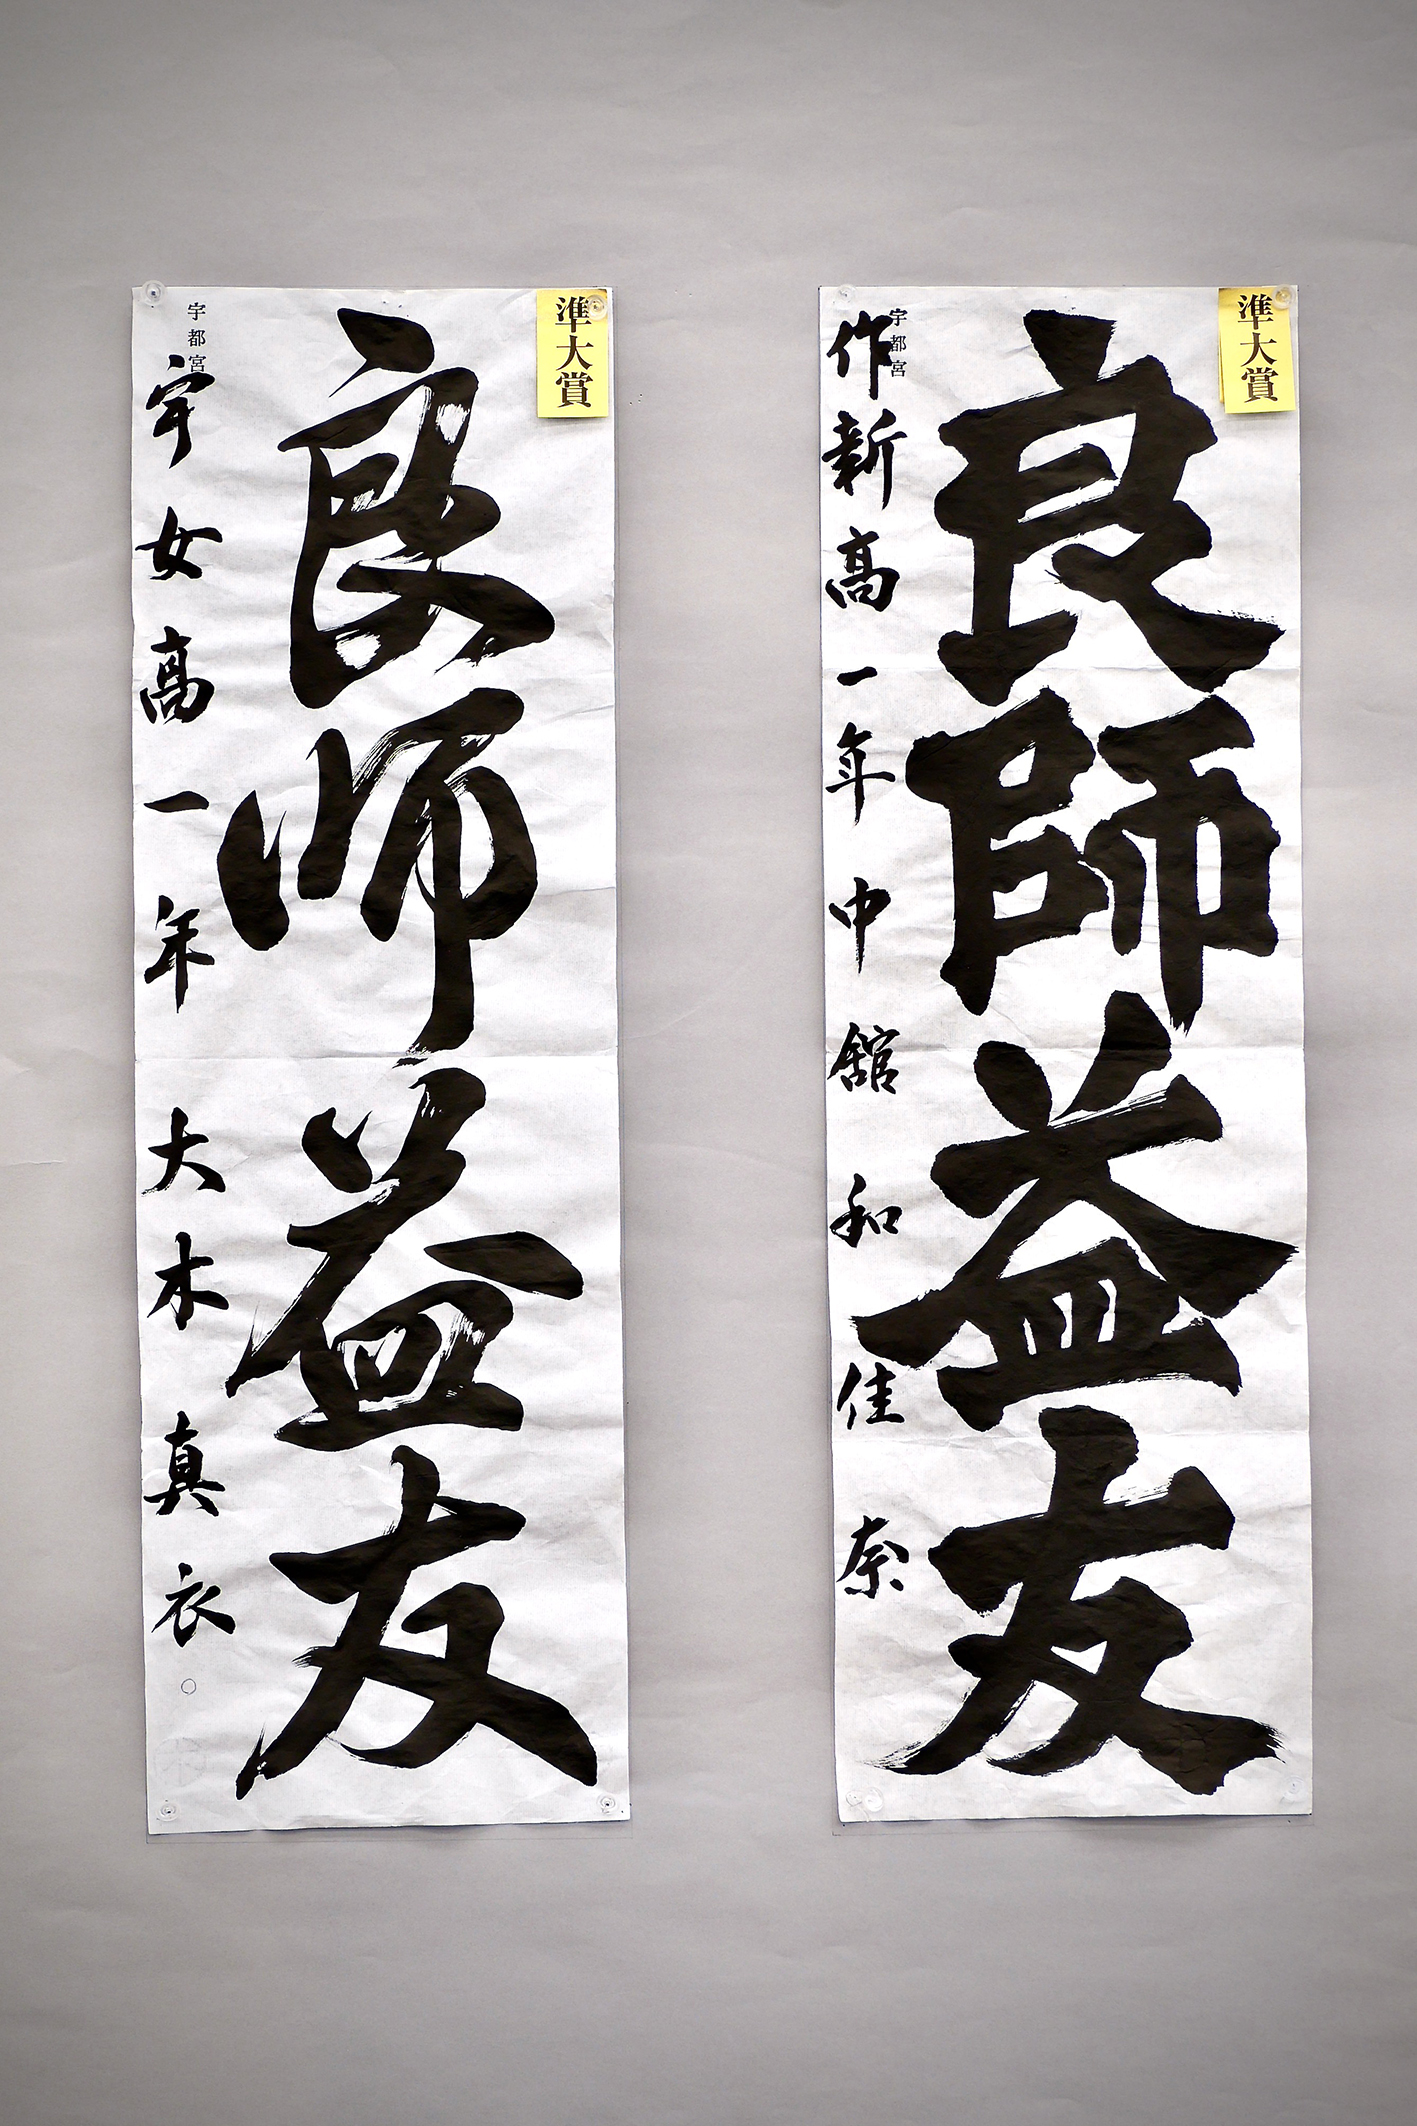 準大賞
良師益友
宇都宮
作新高一年中舘和佳奈
準大賞
良师益友
宇都宮
宇女高一年大木真衣